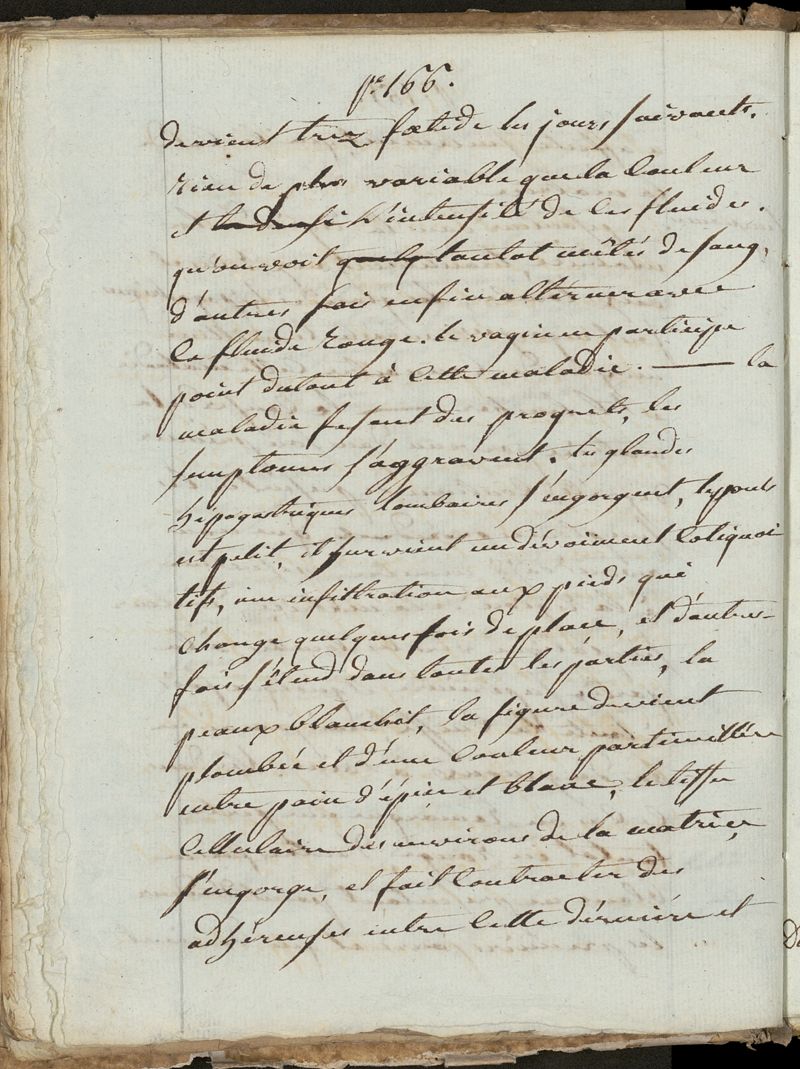 pe. 166.
devient trez fœtide les jours suivants.
rien de plus variable que la Couleur
et l'intensité de ces fluides.
qu'on voit quelq tantot mêlés de sang,
d'autres fois enfin alterner avec
le fluide rouge. le vagin ne participe
point dutout à Cette maladie. — la
maladie fesant des progrets, les
semptomes s'aggravent. les glandes
hipogastriques lombaires s'engorgent, le pouls
est petit, il survient un dévoiment Coliquoi
tifs, une infiltration aux pieds qui
change quelques fois de place, et d'autres-
fois s'étend dans toutes les parties, la
peaux blanchit, la figure devient
plombée et d'une Couleur particuillière
entre pain d'épice et blanc, le tissu
Cellulaire des environs de la matrice
s'engorge, et fait Contracter des
adhérenses entre Cette dérnière et